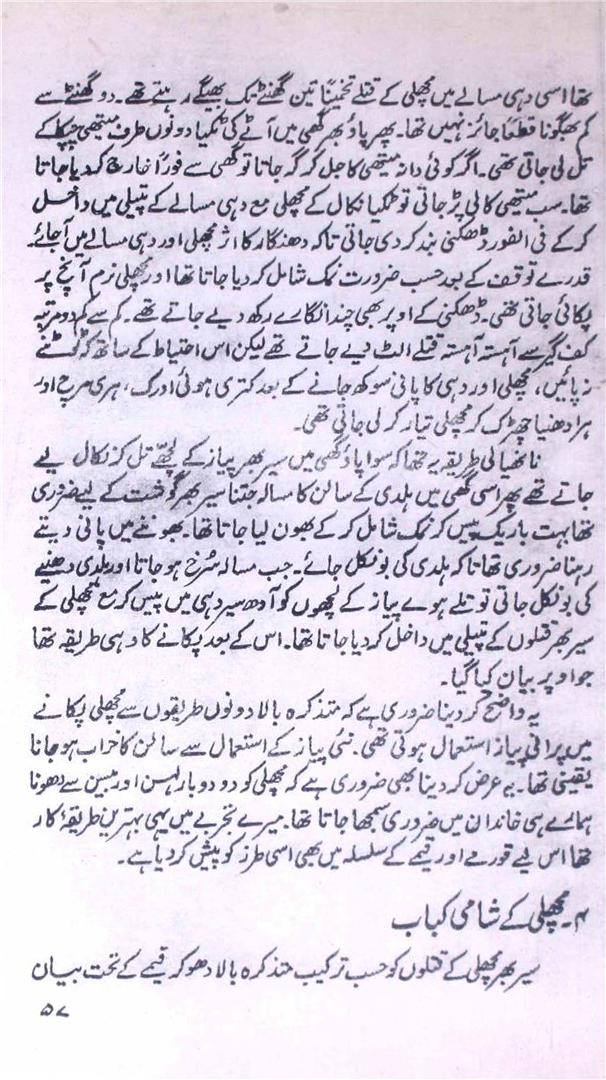 تھا اسی دہی مسالے میں مچھلی کے قتلے تخمیناً تین گھنٹے تک بھیگے رہتے تھے۔ دو گھنٹے سے
کم بھگونا قطعاً جائز نہیں تھا۔ پھر پاؤ بھر گھی میں آٹے کی ٹکیا دونوں طرف میتھی چپکا کے
تل لی جاتی تھی۔ اگر کوئی دانہ میتھی کا جل کر گر جاتا تو گھی سے فوراً خارج کر دیا جاتا
تھا۔ سب میتھی کالی پڑ جاتی تو ٹکیا نکال کے مچھلی مع دہی مسالے کے پتیلی میں داخل
کر کے فی الفور ڈھکنی بند کر دی جاتی تاکہ دھنگار کا اثر مچھلی اور دہی مسالے میں آ جائے۔
قدرے توقف کے بعد حسب ضرورت نمک شامل کر دیا جاتا تھا اور مچھلی نرم آنچ پر
پکائی جاتی تھی۔ ڈھکنی کے اوپر بھی چند انگارے رکھ دیے جاتے تھے۔ کم سے کم دو مرتبہ
کف گیر سے آہستہ آہستہ قتلے الٹ دیے جاتے تھے لیکن اس احتیاط کے ساتھ کہ ٹوٹنے
نہ پائیں، مچھلی اور دہی کا پانی سوکھ جانے کے بعد کتری ہوئی ادرک، ہری مرچ اور
ہرا دھنیا چھڑک کر مچھلی تیار کر لی جاتی تھی۔
نانھیالی طریقہ یہ تھا کہ سوا پاؤ گھی میں سیر بھر پیاز کے لچھے تل کر نکال لیے
جاتے تھے پھر اسی گھی میں ہلدی کے سالن کا مسالہ جتنا سیر بھر گوشت کے لیے ضروری
تھا بہت باریک پیس کر نمک شامل کر کے بھون لیا جاتا تھا۔ بھوننے میں پانی دیتے
رہنا ضروری تھا تاکہ ہلدی کی بو نکل جائے۔ جب مسالہ سرخ ہو جاتا اور ہلدی دھنیے
کی بو نکل جاتی تو تلے ہوے پیاز کے لچھوں کو آدھ سیر دہی میں پیس کر مع مچھلی کے
سیر بھر قتلوں کے پتیلی میں داخل کر دیا جاتا تھا۔ اس کے بعد پکانے کا وہی طریقہ تھا
جو اوپر بیان کیا گیا۔
یہ واضح کر دینا ضروری ہے کہ متذکرہ بالا دونوں طریقوں سے مچھلی پکانے
میں پرانی پیاز استعمال ہوتی تھی۔ نئی پیاز کے استعمال سے سالن کا خراب ہو جانا
یقینی تھا۔ یہ عرض کر دینا بھی ضروری ہے کہ مچھلی کو دو دو بار لہسن اور بیسن سے دھونا
ہمارے ہی خاندان میں ضروری سمجھا جاتا تھا۔ میرے تجربے میں یہی بہترین طریقۂ کار
تھا اس لیے قورمے اور قیمے کے سلسلہ میں بھی اسی طرز کو پیش کر دیا ہے۔
۴۔ مچھلی کے شامی کباب
سیر بھر مچھلی کے قتلوں کو حسب ترکیب متذکرہ بالا دھو کر قیمے کے تحت بیان
۵۷